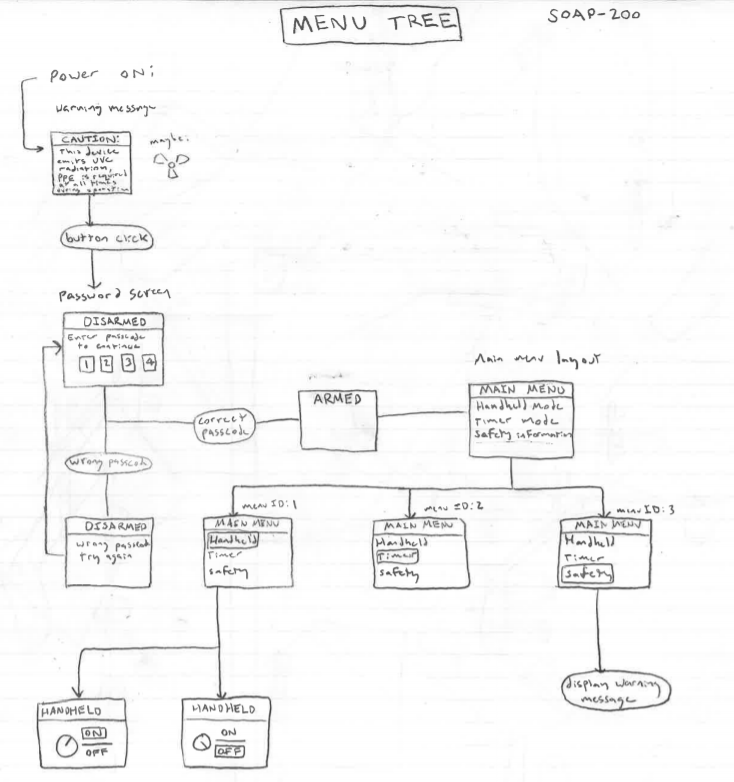 MENU TREE
SOAP-200
Power ON:
Warning message
CAUTION:
This device
emits UVC
radiation,
PPE is required
at all times
during operation
maybe:
button click
Password screen
DISARMED
Enter passcode
to continue
1 2 3 4
correct
passcode
ARMED
Main menu layout
MAIN MENU
Handheld Mode
Timer Mode
Safety information
wrong passcode
DISARMED
wrong passcode
try again
menu ID:1
MAIN MENU
Handheld
Timer
safety
menu ID:2
MAIN MENU
Handheld
Timer
safety
menu ID:3
MAIN MENU
Handheld
Timer
safety
display warning
message
HANDHELD
ON
OFF
HANDHELD
ON
OFF